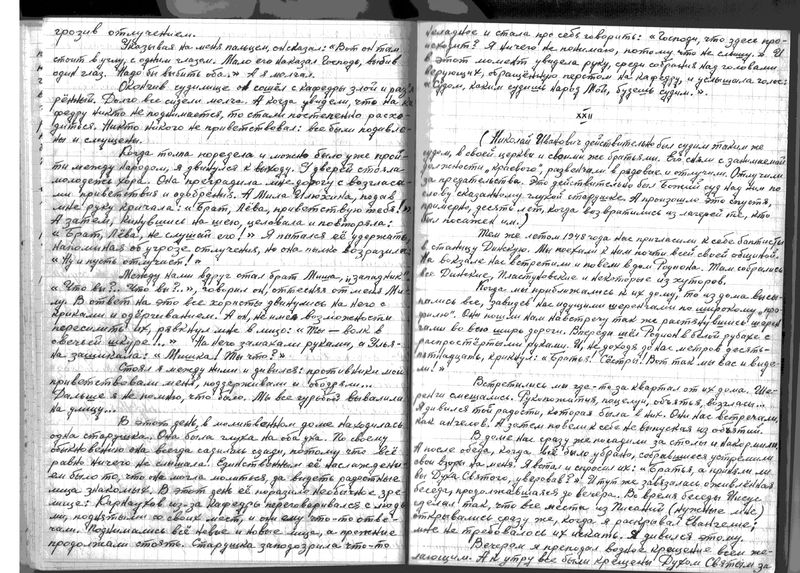 грозив отлучением.
Указывая на меня пальцем, он сказал: „Вот он там
стоит в углу, с одним глазом. Мало его наказал Господь, выбив
один глаз. Надо бы выбить оба.» А я молчал.
Окончив судилище он сошёл с кафедры злой и разъ-
рённый. Долго все сидели молча. А когда увидели, что на ка-
федру никто не поднимается, то стали постепенно расхо-
диться. Никто никого не приветствовал: все были подавле-
ны и смущены.
Когда толпа поредела и можно было уже прой-
ти между народом, я двинулся к выходу. У дверей стояла
молодежь хора. Она преградила мне дорогу с возгласа-
ми приветствия и одобрения. А Мила Илюхина, подав
мне руку кричала: «Брат, Лёва, приветствую тебя!»
А затем, кинувшись на шею, целовала и повторяла:
«Брат, Лёва, не слушай его!» Я пытался её удержать,
напоминая об угрозе отлучения, но она пылко возразила:
«Ну и пусть отлучает!»
Между нами вдруг стал брат Миша, „западник".
«Что вы?.. Что вы?..», говорил он, оттесняя от меня Ми-
лу. В ответ на это все хористы двинулись на него с
криками и одёргиванием. А он, не имея возможности
пересилить их, рявкнул мне в лицо: «Ты — волк в
овечьей шкуре!..» На него замахали руками, а Улья-
на зашикала: «Мишка! Ты что?»
Стоял я между ними и дивился: противники мои
приветствовали меня, поддерживали и ободряли...
Дальше я не помню, что было. Мы все гурьбой вывалили
на улицу...
В этот день, в молитвенном доме находилась
одна старушка. Она была глуха на оба уха. По своему
обыкновению она всегда садилась сзади, потому что всё
равно ничего не слышала. Единственным её наслаждени-
ем было то, что она могла молиться, да видеть радостные
лица знакомых. В этот день её поразило необычное зре-
лище: Карнаухов из кафедры переговаривался с людь-
ми, поднятыми со своих мест, и они ему что-то отве-
чали. Поднимались всё новые и новые лица, а прежние
продолжали стоять. Старушка заподозрила что-то
неладное и стала про себя говорить: «Господи, что здесь про-
исходит? Я ничего не понимаю, потому что не слышу.» И
в этот момент увидела руку, среди собрания над головами
верующих, обращённую перстом на кафедру, и услышала голос:
«Судом, каким судишь народ Мой, будешь судим.».
XXII
(Николай Иванович действительно был судим таким же
судом, в своей церкви и своими же братьями. Его сняли с занимаемой
должности „краевого", развенчали в рядовые и отлучили. Отлучили
за предательства. Это действительно был Божий суд над ним по
слову, сказанному глухой старушке. А произошло это спустя,
примерно, десять лет, когда возвратились из лагерей те, кто
был посажен им)
Тем же летом 1948 года нас пригласили к себе баптисты
в станицу Динскую. Мы поехали к ним почти всей своей общиной.
На вокзале нас встретили и повели в дом Родиона. Там собрались
все Динские, Пластуновские и некоторые из хуторов.
Когда мы приближались к их дому, то из дома высы-
пались все, завидев нас идущими шеренгами по широкому „про-
филю". Они пошли нам навстречу так же растянувшись шерен-
гами во всю ширь дороги. Впереди шёл Родион в белой рубахе с
распростёртыми руками. И, не доходя до нас метров десять-
пятнадцать, крикнул: «Братья! Сёстры! Вот так мы вас и виде-
ли!»
Встретились мы где-то за квартал от их дома. Ше-
ренги смешались. Рукопожатия, поцелуи, объятья, возгласы...
Я дивился той радости, которая была в них. Они нас встречали,
как ангелов. А затем повели к себе не выпуская из объятий.
В доме нас сразу же посадили за столы и накормили.
А после обеда, когда всё было убрано, собравшиеся устремили
свои взоры на меня. Я встал и спросил их: «Братья, а приняли ли
вы Духа Святого, уверовав?» И тут же завязалась оживлённая
беседа, продолжавшаяся до вечера. Во время беседы Иисус
сделал так, что все места из Писаний (нужные мне)
открывались сразу же, когда я раскрывал Евангелие;
мне не требовалось их искать. Я дивился этому.
Вечером я преподал водное крещение всем же-
лающим. А к утру все были крещены Духом Святым за